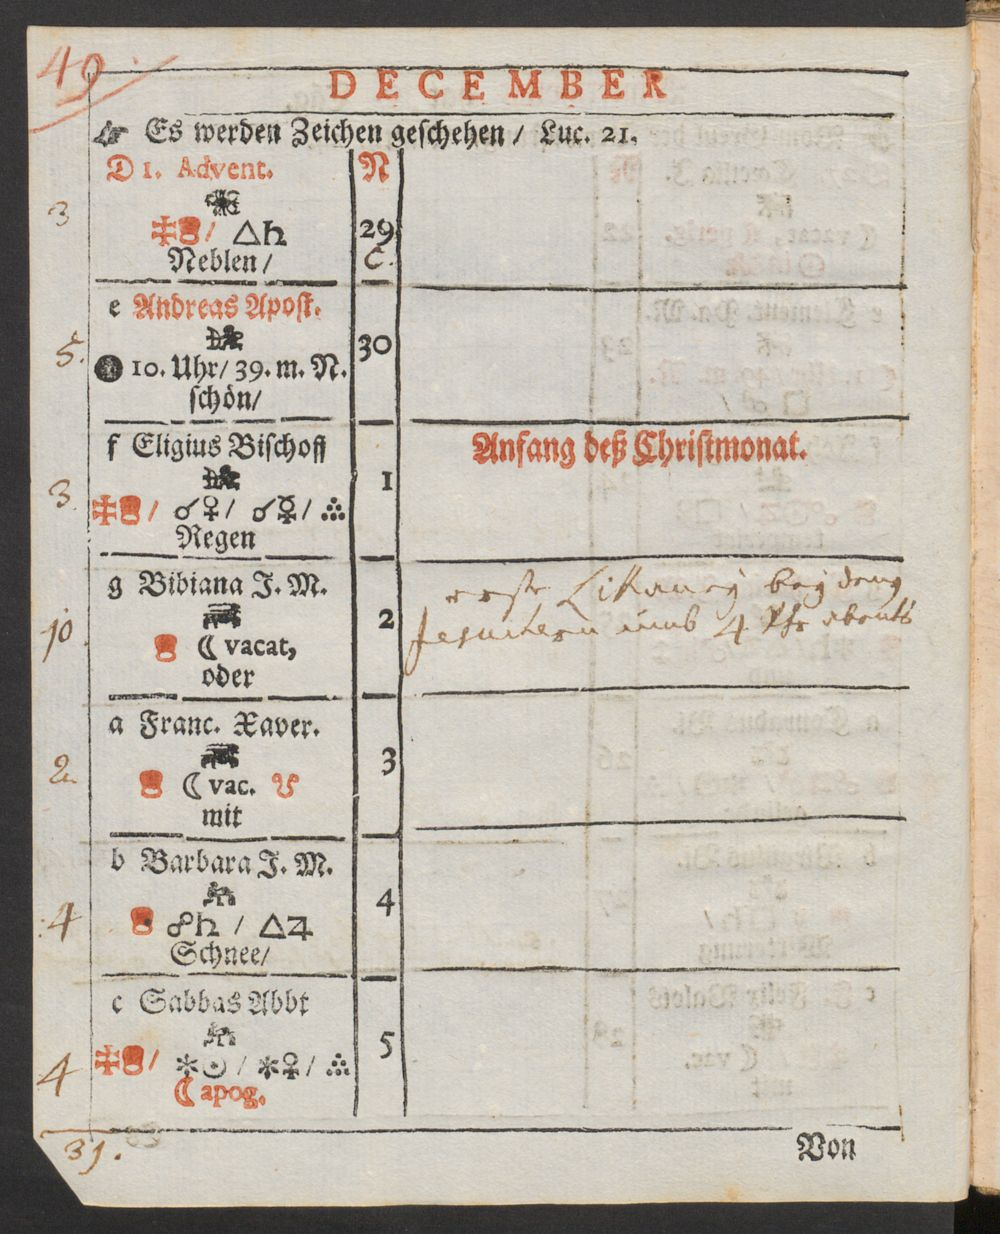 49.
DECEMBER
☞ Es werden Zeichen geschehen / Luc. 21.
D 1. Advent. N
3
/ △♄ 29
Neblen/ C.
e Andreas Apost.
5. 30
10. Uhr/ 39. m. N.
schön/
f Eligius Bischoff Anfang deß Christmonat.
3. 1
/ ☌♀/ ☌☿/ ஃ
Regen
g Bibiana J. M. erste Littaney bey deny
10. 2 Jesuitern umb 4 Vhr abents
☾ vacat,
oder
a Franc. Xaver.
2. 3
☾ vac. ☋
mit
b Barbara J. M.
4 4
☍♄ / △♃
Schnee/
c Sabbas Abbt
5
4 / ✶☉ / ✶♀ /
☾ apog.
31.
Von